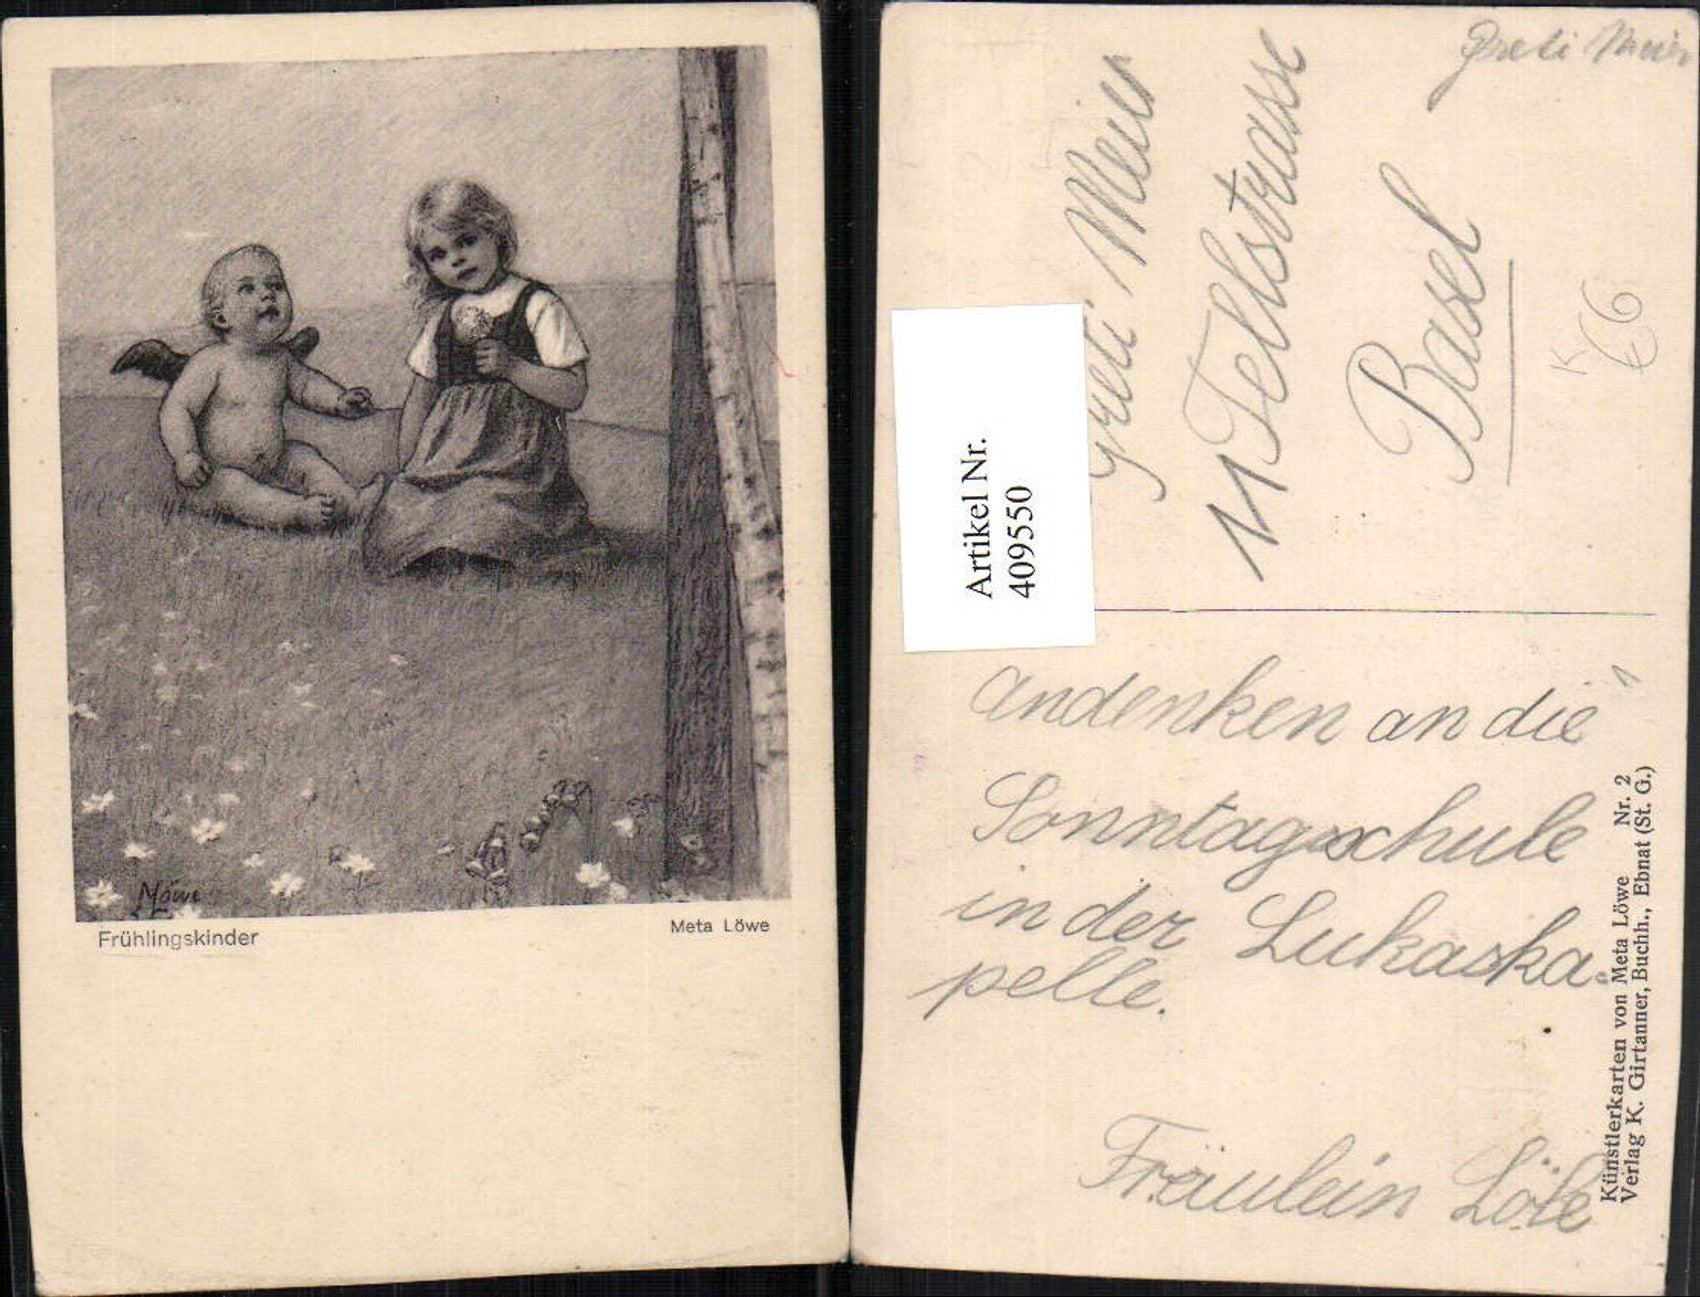 Möwe
Frühlingskinder
Meta Löwe
Greti Meier
Greti Meier
11 Tellstrasse
Basel
K
€6
Artikel Nr.
409550
1
Andenken an die
Sonntagsschule
in der Lukaska-
pelle.
Fräulein Löle
Künstlerkarten von Meta Löwe Nr. 2
Verlag K. Girtanner, Buchh., Ebnat (St. G.)